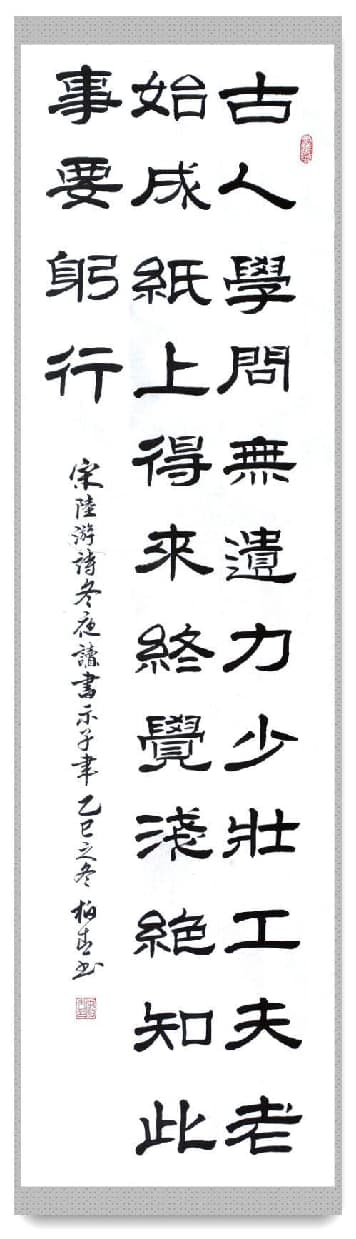 古人學問無遺力少壯工夫老
始成紙上得來終覺淺絕知此
事要躬行
宋陸游詩冬夜讀書示子聿 乙巳之冬 柏书